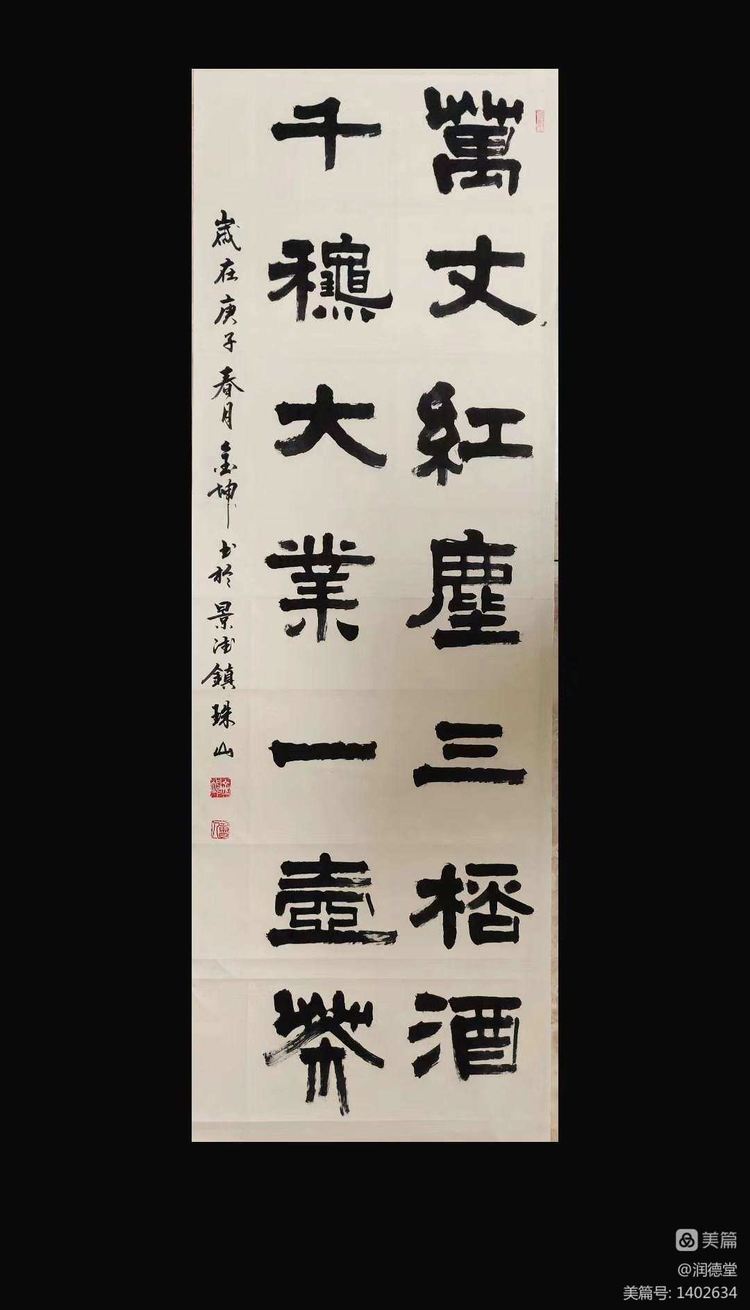 萬丈紅塵三桮酒
千龝大業一壺茶
歲在庚子春月金坤书於景德鎮珠山
美篇
@润德堂
美篇号: 1402634